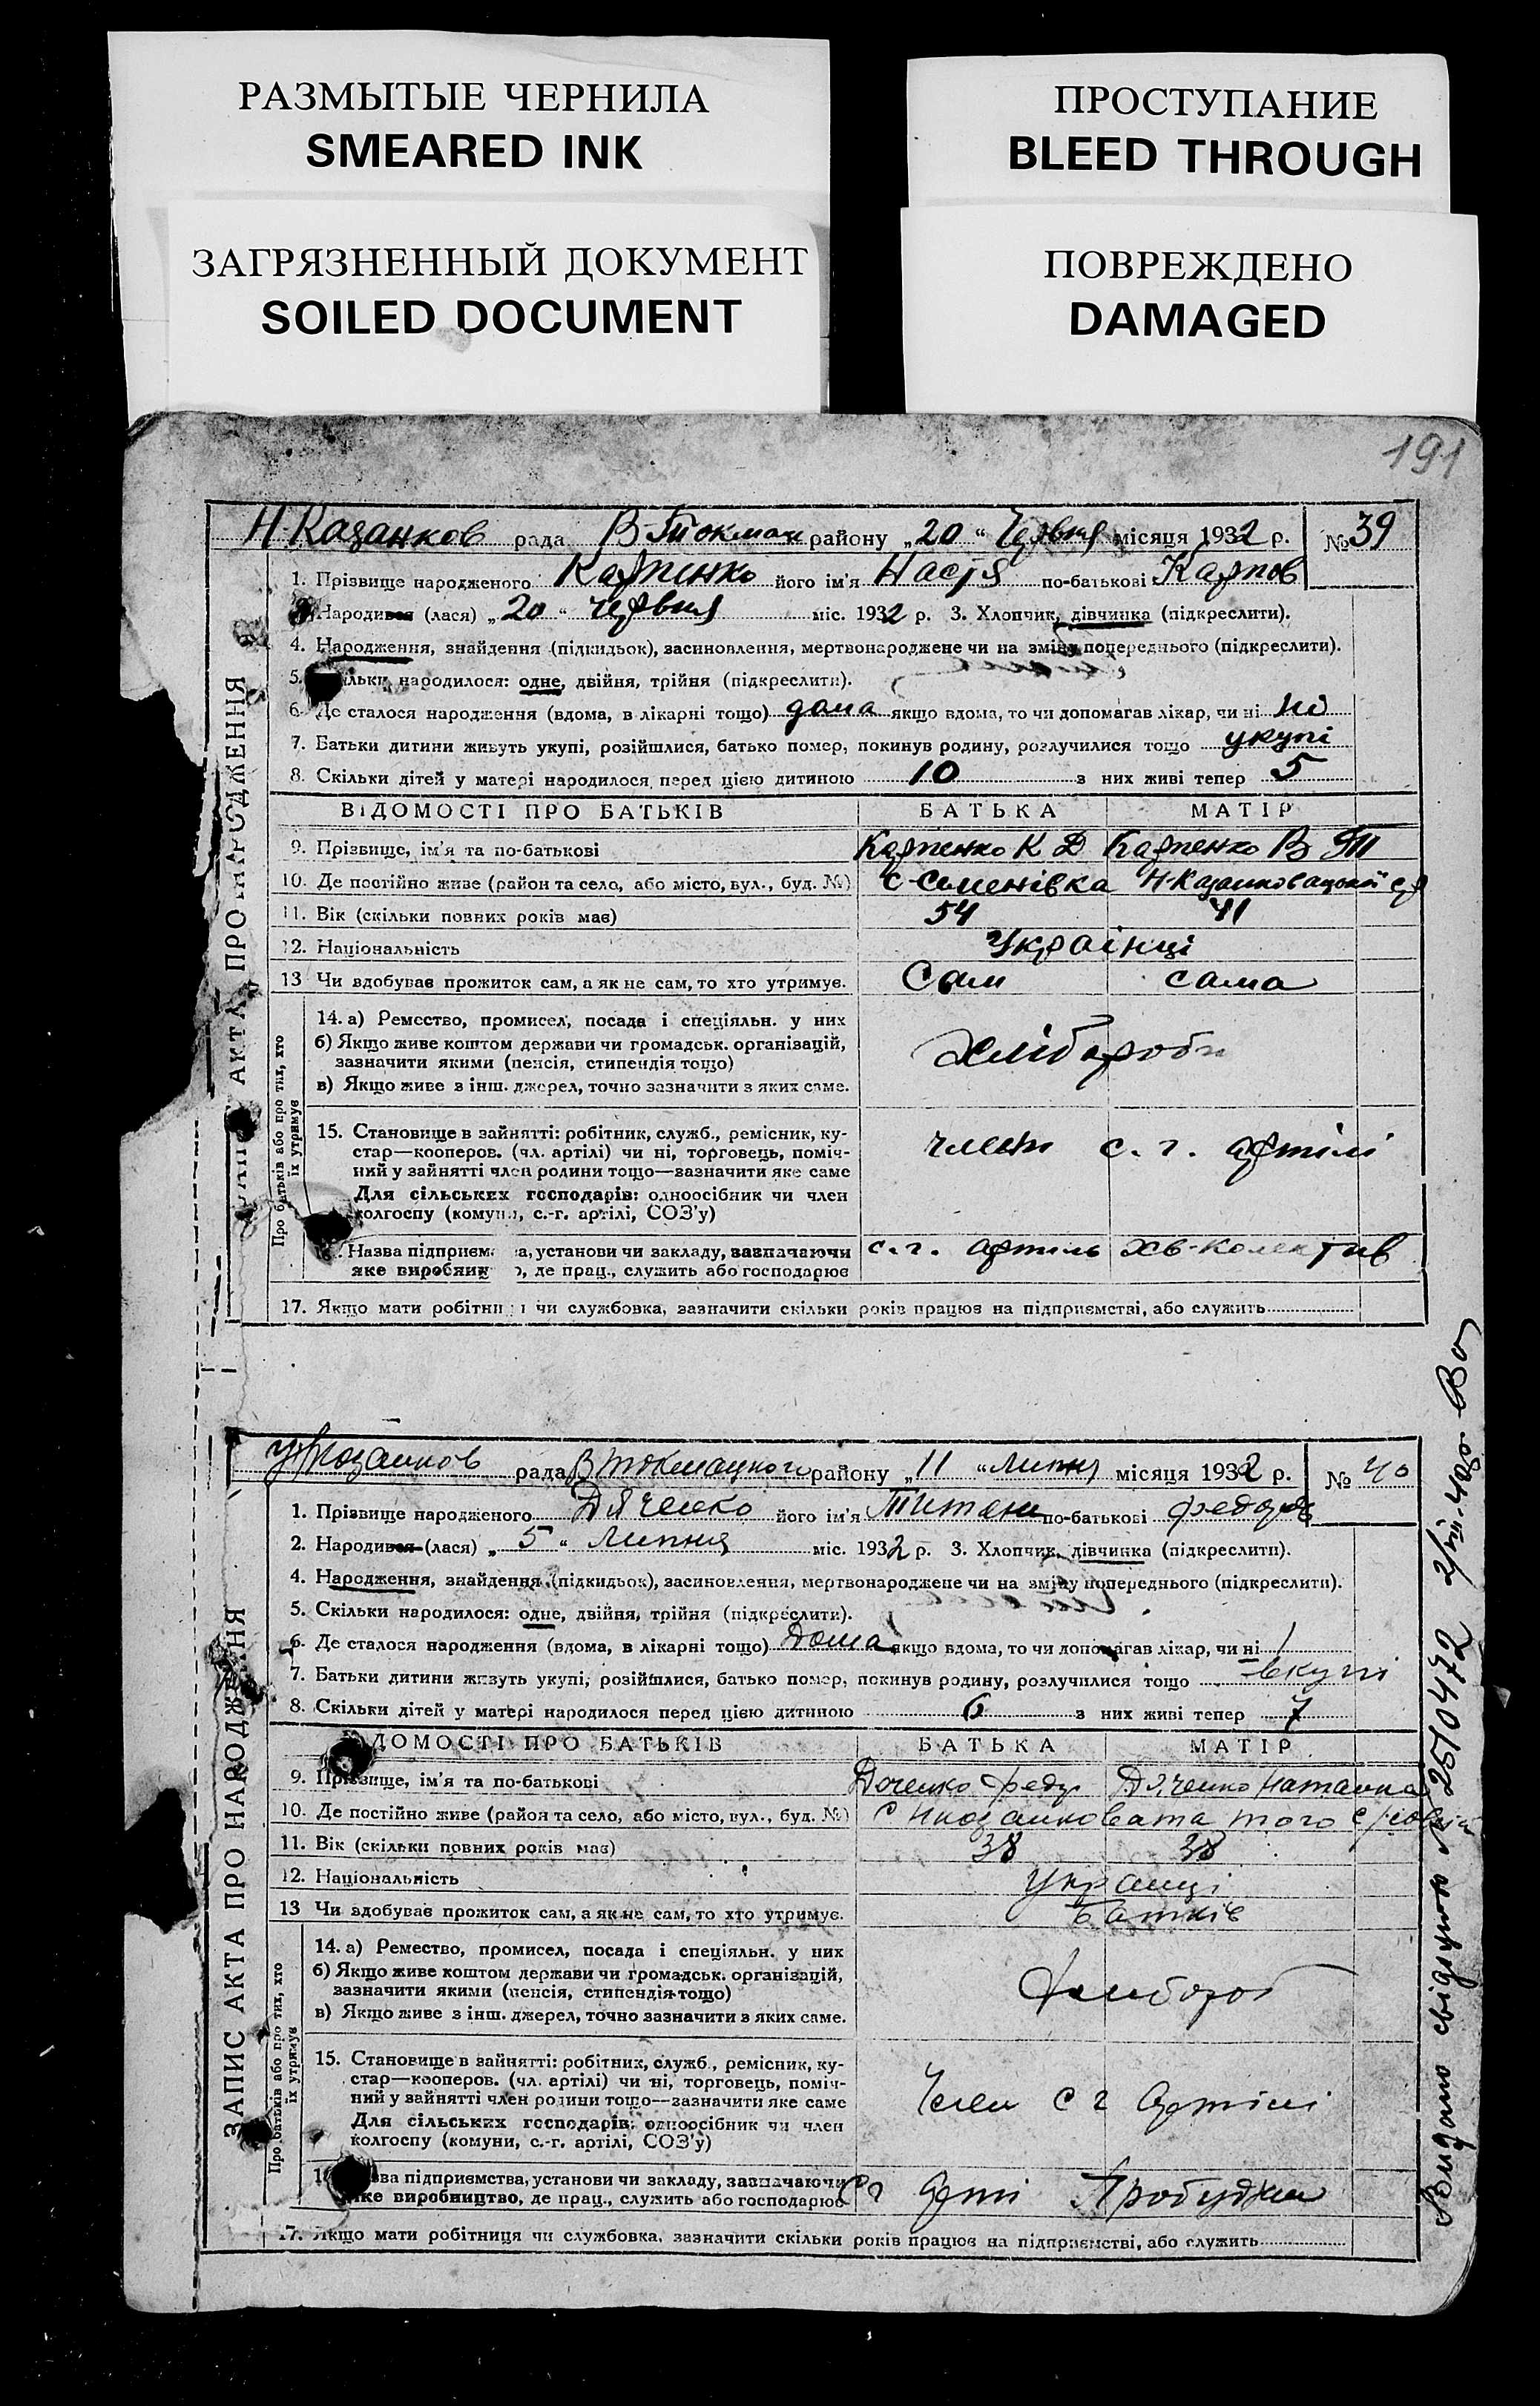 РАЗМЫТЫЕ ЧЕРНИЛА
SMEARED INK
ПРОСТУПАНИЕ
BLEED THROUGH
ЗАГРЯЗНЕННЫЙ ДОКУМЕНТ
SOILED DOCUMENT
ПОВРЕЖДЕНО
DAMAGED
191
Н-Казанков рада В-Токмак району „20“ Червня місяця 1932 р. № 39
1. Прізвище народженого Карпенко його ім'я Настя по-батькові Карпов
Народився (лася) „20“ Червня міс. 1932 р. 3. Хлопчик, дівчинка (підкреслити).
4. Народження, знайдення (підкидьок), засиновлення, мертвонароджене чи на зміну попереднього (підкреслити).
5. ільки народилося: одне, двійня, трійня (підкреслити).
6. Де сталося народження (вдома, в лікарні тощо) дома якщо вдома, то чи допомагав лікар, чи ні
7. Батьки дитини живуть укупі, розійшлися, батько помер, покинув родину, розлучилися тощо укупі
8. Скільки дітей у матері народилося перед цією дитиною 10 з них живі тепер 5
ВІДОМОСТІ ПРО БАТЬКІВ БАТЬКА МАТІР
9. Прізвище, ім'я та по-батькові Карпенко К Д Карпенко В
10. Де постійно живе (район та село, або місто, вул., буд. №) с-Семенівка Н-Казанковацької с/р
11. Вік (скільки повних років має) 54 41
12. Національність Українці
13 Чи здобував прожиток сам, а як не сам, то хто утримує. Сам сама
14. а) Ремество, промисел, посада і спеціяльн. у них
б) Якщо живе коштом держави чи громадськ. організацій,
зазначити якими (пенсія, стипендія тощо)
в) Якщо живе з інш. джерел, точно зазначити з яких саме.
Хлібороби
15. Становище в зайнятті: робітник, служб., ремісник, ку-
стар—кооперов. (чл. артілі) чи ні, торговець, поміч-
ний у зайнятті член родини тощо—зазначити яке саме
Для сільських господарів: одноосібник чи член
колгоспу (комуни, с.-г. артілі, СОЗ'у)
члени с. г. артілі
Назва підприєм а, установи чи закладу, зазначаючи
яке виробни о, де прац., служить або господарює
с. г. артиль хв-колектив
17. Якщо мати робітни я чи службовка, зазначити скільки років працює на підприємстві, або служить
АКТА ПРО НАРОДЖЕННЯ
Про батьків або про тих, хто
їх утримує
рада Втокмацького району „11“ Липня місяця 1932 р. № 40
1. Прізвище народженого Дяченко його ім'я по-батькові Федоров
2. Народився (лася) „5“ Липня міс. 1932 р. 3. Хлопчик, дівчинка (підкреслити).
4. Народження, знайдення (підкидьок), засиновлення, мертвонароджене чи на зміну попереднього (підкреслити).
5. Скільки народилося: одне, двійня, трійня (підкреслити).
6. Де сталося народження (вдома, в лікарні тощо) Дома якщо вдома, то чи допомагав лікар, чи ні
7. Батьки дитини живуть укупі, розійшлися, батько помер, покинув родину, розлучилися тощо вкупі
8. Скільки дітей у матері народилося перед цією дитиною 6 з них живі тепер 7
ДОМОСТІ ПРО БАТЬКІВ БАТЬКА МАТІР
9. Прізвище, ім'я та по-батькові Федор Дяченко Наталка
10. Де постійно живе (район та село, або місто, вул., буд. №) с Нказанковата того
11. Вік (скільки повних років має) 38 38
12. Національність Українці
13 Чи здобував прожиток сам, а як не сам, то хто утримує. батьків
14. а) Ремество, промисел, посада і спеціяльн. у них
б) Якщо живе коштом держави чи громадськ. організацій,
зазначити якими (пенсія, стипендія тощо)
в) Якщо живе з інш. джерел, точно зазначити з яких саме.
Хлибороб
15. Становище в зайнятті: робітник, служб., ремісник, ку-
стар—кооперов. (чл. артілі) чи ні, торговець, поміч-
ний у зайнятті член родини тощо—зазначити яке саме
Для сільських господарів: одноосібник чи член
колгоспу (комуни, с.-г. артілі, СОЗ'у)
Член с г артілі
ва підприємства, установи чи закладу, зазначаючи
яке виробництво, де прац., служить або господарює
Сг арті
17. Якщо мати робітниця чи службовка, зазначити скільки років працює на підприємстві, або служить
ЗАПИС АКТА ПРО НАРОДЖЕННЯ
Про батьків або про тих, хто
їх утримує
Видано свідоцтво № 2510472 2/VIII-40р